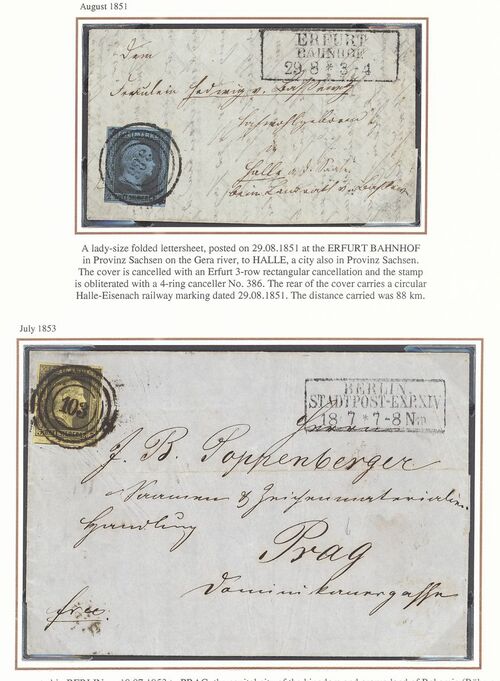 August 1851
ERFURT
BAHNHOF
29 8 * 3-4
Dem
Fräulein Hedwig v. Bassewitz
Hochwohlgeboren
in
Halle a. d. Saale
A lady-size folded lettersheet, posted on 29.08.1851 at the ERFURT BAHNHOF
in Provinz Sachsen on the Gera river, to HALLE, a city also in Provinz Sachsen.
The cover is cancelled with an Erfurt 3-row rectangular cancellation and the stamp
is obliterated with a 4-ring canceller No. 386. The rear of the cover carries a circular
Halle-Eisenach railway marking dated 29.08.1851. The distance carried was 88 km.
July 1853
BERLIN
STADTPOST-EXP.XIV
18 7 * 7-8 Nm
103
Herrn
J. B. Poppenberger
Saamen & Zeichenmaterialien
Handlung
Prag
Dominikanergasse
free